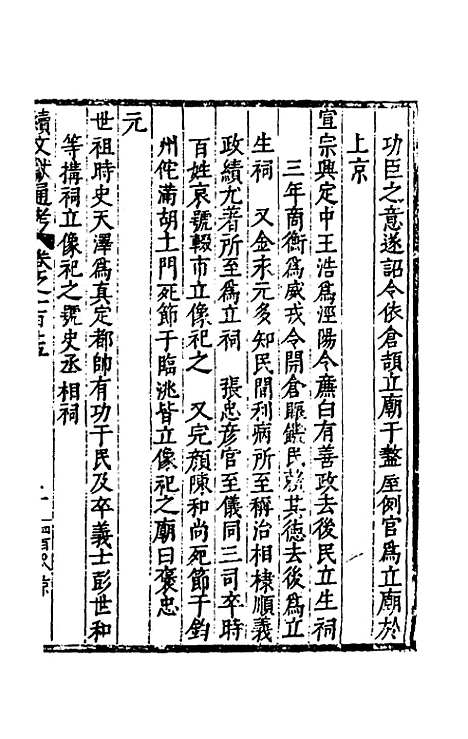 功臣之意遂詔令依倉頡立廟于盩厔例官爲立廟於
上京
宣宗興定中王浩爲涇陽令亷白有善政去後民立生祠
三年商衡爲威戎令開倉賑饑民懷其德去後爲立
生祠　又金末元多知民間利病所至稱治相棣順義
政績尤著所至爲立祠　張忠彥官至儀同三司卒時
百姓哀號輟市立像祀之　又完顏陳和尚死節于鈞
州佗滿胡土門死節于臨洮皆立像祀之廟曰褒忠
元
世祖時史天澤爲真定都帥有功于民及卒義士彭世和
等搆祠立像祀之號史丞相祠
續文獻通考 卷之一百十五